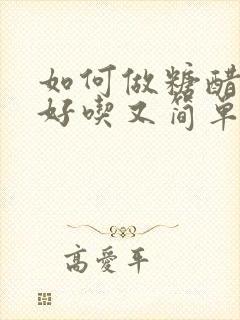 如何做糖醋
好喫又简单
高愛平